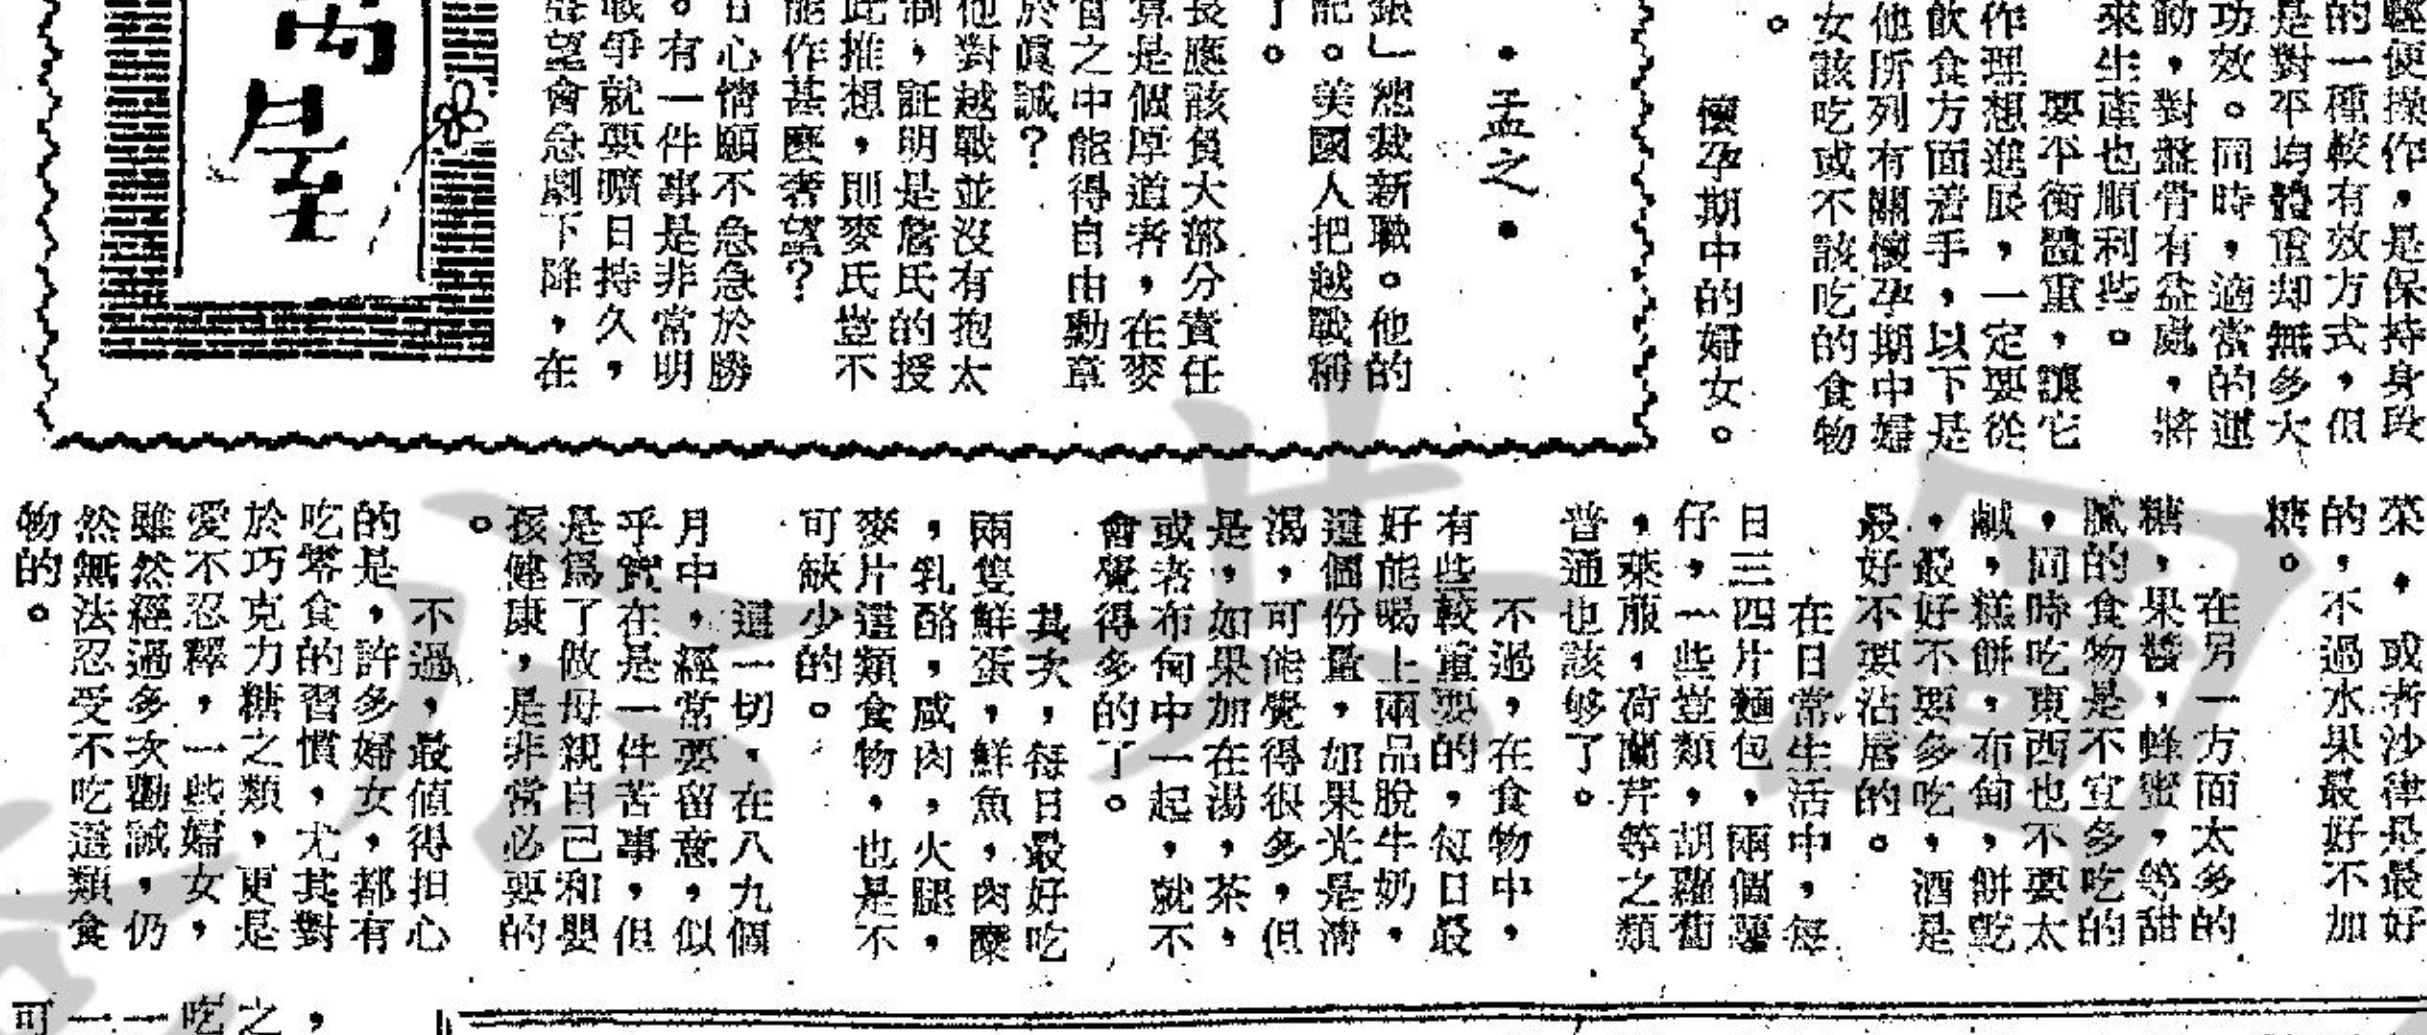 輕便操作,是保持身段
的一種較有效方式,但
是對平均體重却無多大
功效。同時,適當的運
動,對盤骨有益處,將
來生產也順利些。
要平衡體重,讓它
作理想進展,一定要從
飲食方面着手,以下是
他所列有關懷孕期中婦
女該吃或不該吃的食物
。
懷孕期中的婦女。
•孟之•
銀」總裁新職。他的
記。美國人把越戰稱
了。
長應該負大部分責任
算是個厚道者,在麥
官之中能得自由勳章
於眞誠?
他對越戰並沒有抱太
制,証明是詹氏的授
此推想,則麥氏豈不
能作甚麼奢望?
甘心情願不急急於勝
。有一件事是非常明
戰爭就要曠日持久,
望會急劇下降,在
菜,或者沙律是最好
的,不過水果最好不加
糖。
在另一方面太多的
糖,果醬,蜂蜜,等甜
膩的食物是不宜多吃的
,同時吃東西也不要太
鹹,糕餅,布甸,餅乾
,最好不要多吃,酒是
最好不要沾唇的。
在日常生活中,每
日三四片麵包,兩個薯
仔,一些荳類,胡蘿蔔
,菜服,荷蘭芹等之類
普通也該够了。
不過,在食物中,
有些較重要的,每日最
好能喝上兩品脫牛奶,
這個份量,如果光是淸
渴,可能覺得很多,但
是,如果加在湯,茶,
或者布甸中一起,就不
會覺得多的了。
其次,每日最好吃
兩隻鮮蛋,鮮魚,肉糜
,乳酪,咸肉,火腿,
麥片這類食物,也是不
可缺少的。
這一切,在八九個
月中,經常要留意,似
乎實在是一件苦事,但
是爲了做母親自己和嬰
孩健康,是非常必要的
。
不過,最値得担心
的是,許多婦女,都有
吃零食的習慣,尤其對
於巧克力糖之類,更是
愛不忍釋,一些婦女,
雖然經過多次勸誡,仍
然無法忍受不吃這類食
物的。
,
之
吃
一
一
可